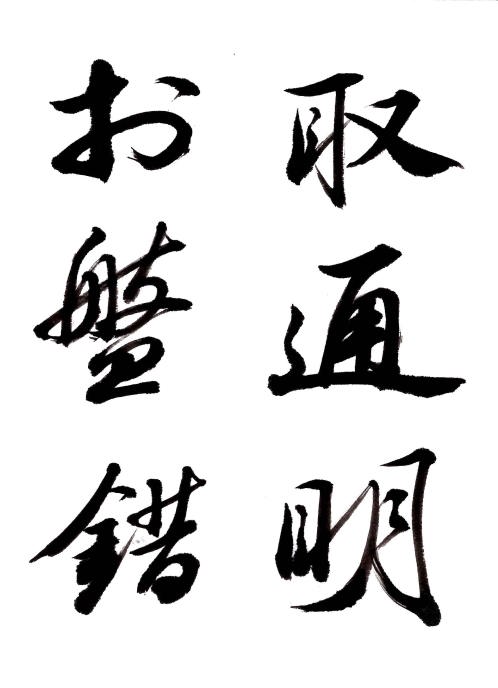 取通明
於盤錯